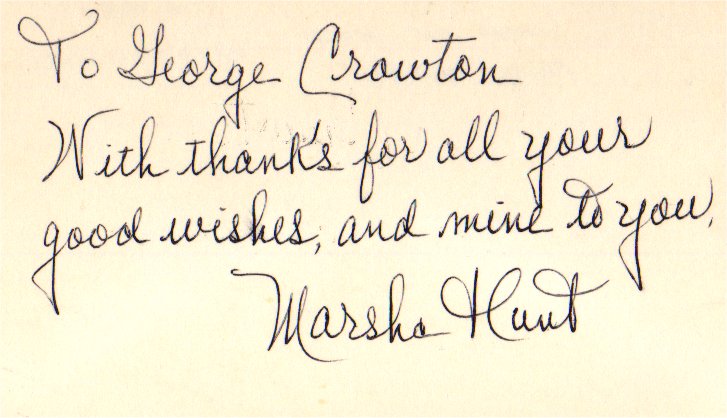 To George Crowton
With thanks for all your
good wishes, and mine to you,
Marsha Hunt